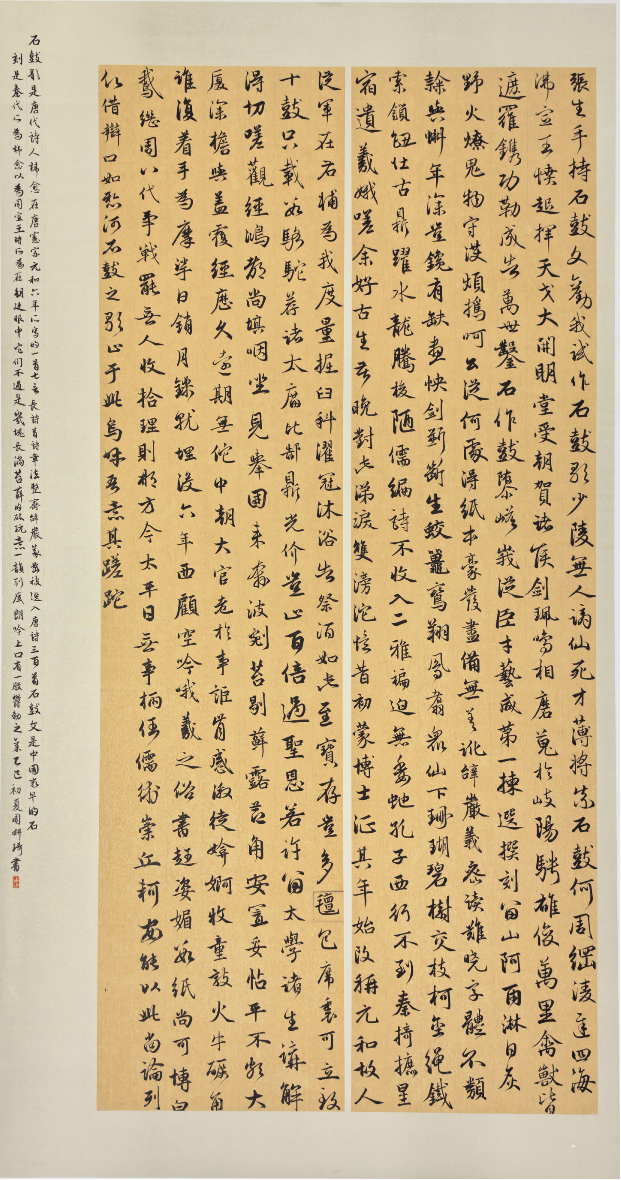 張生手持石鼓文勸我試作石鼓歌少陵無人謫仙死才薄將奈石鼓何周綱淩遲四海
沸宣王憤起揮天戈大開明堂受朝賀諸侯劍珮鳴相磨蒐於岐陽騁雄俊萬里禽獸皆
遮羅鐫功勒成告萬世鑿石作鼓隳嵯峨從臣才藝咸第一揀選撰刻留山阿雨淋日炙
野火燎鬼物守護煩撝呵公從何處得紙本豪髮盡備無差訛辭嚴義密讀難曉字體不類
隸與蝌年深豈免有缺畫快劍斫斷生蛟鼉鸞翔鳳翥眾仙下珊瑚碧樹交枝柯金繩鐵
索鎖鈕壯古鼎躍水龍騰梭陋儒編詩不收入二雅褊迫無委蛇孔子西行不到秦掎摭星
宿遺羲娥嗟余好古生苦晚對此涕淚雙滂沱憶昔初蒙博士徵其年始改稱元和故人
從軍在右輔為我度量掘臼科濯冠沐浴告祭酒如此至寶存豈多氈包席裹可立致
十鼓只載數駱駝薦諸太廟比郜鼎光價豈止百倍過聖恩若許留太學諸生講解
得切嗟觀經鴻都尚填咽坐見舉國來奔波剜苔剔蘚露節角安置妥帖平不頗大
廈深檐與蓋覆經歷久遠期無佗中朝大官老於事詎肯感激徒媕婀牧童敲火牛礪角
誰復着手為摩挲日銷月鑠就埋沒六年西顧空吟哦羲之俗書趁姿媚數紙尚可博白
鵝繼周八代爭戰罷無人收拾理則那方今太平日無事柄任儒術崇丘軻安能以此尚論列
願借辯口如懸河石鼓之歌止于此嗚呼吾意其蹉跎
石鼓歌是唐代詩人韓愈在唐憲宗元和六年所寫的一首七言長詩首詩章法整齊辭嚴義密被選入唐詩三百首石鼓文是中國最早的石
刻是秦代所為韓愈以為周宣王時所為在朝廷眼中它們不過是幾塊長滿苔蘚的破玩意一韻到底朗吟上口有一股鬱勃之氣乙巳初夏周妍琦書